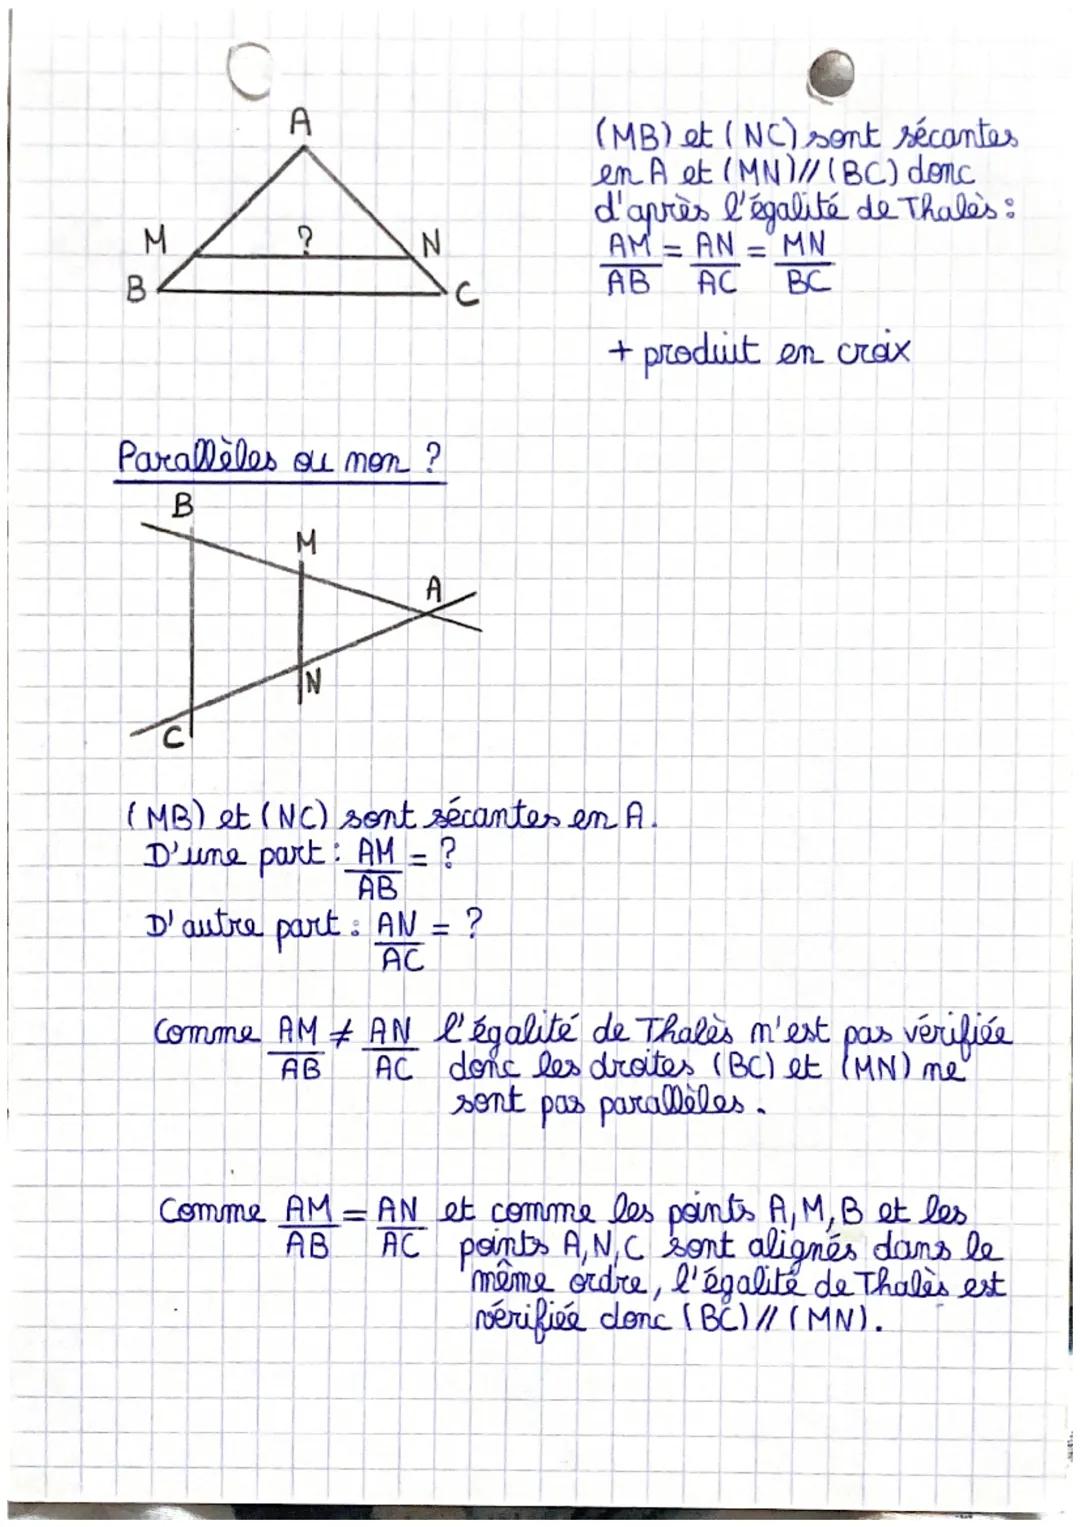 A
M ? N
B C
(MB) et (NC) sont sécantes
en A et (MN)//(BC) donc
d'après l'égalité de Thalès :
AM/AB = AN/AC = MN/BC
+ produit en croix
Parallèles ou non ?
B
M
A
N
C
(MB) et (NC) sont sécantes en A.
D'une part : AM/AB = ?
D'autre part : AN/AC = ?
Comme AM/AB ≠ AN/AC l'égalité de Thalès n'est pas vérifiée
donc les droites (BC) et (MN) ne
sont pas parallèles.
Comme AM/AB = AN/AC et comme les points A, M, B et les
points A, N, C sont alignés dans le
même ordre, l'égalité de Thalès est
vérifiée donc (BC) // (MN).